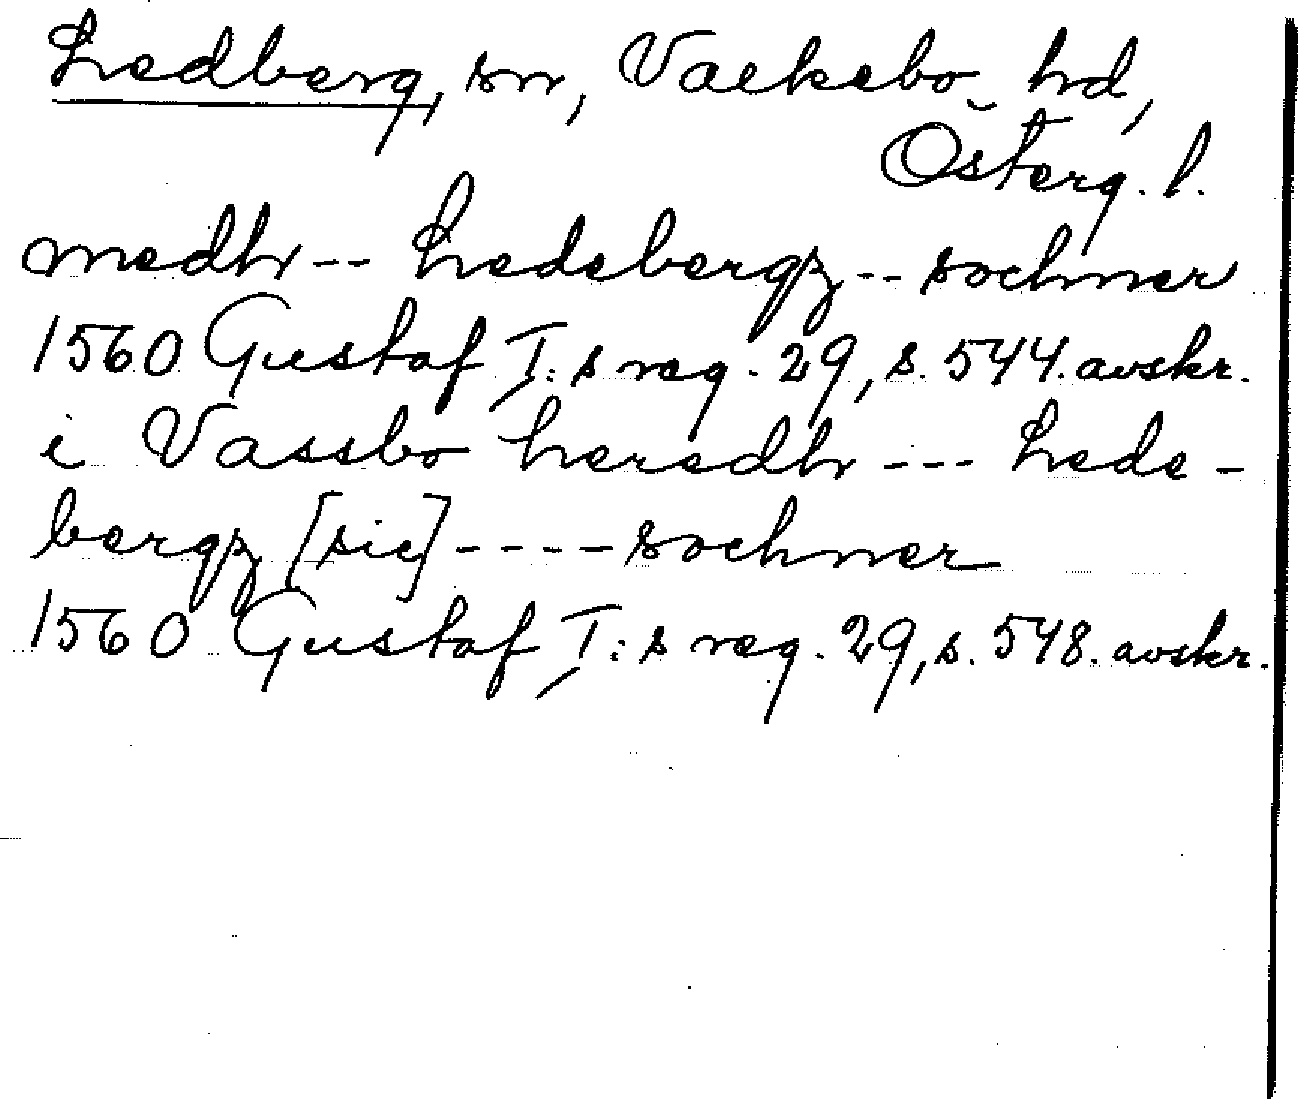 Ledberg, sn, Valkebo hd,
Österg. l.
medh -- Ledebergz -- sochner
1560 Gustaf I:s reg. 29, s. 544. avskr.
i Vassbo heredh --- Lede-
bergz [sic] ---- sochner
1560 Gustaf I:s reg. 29, s. 548. avskr.